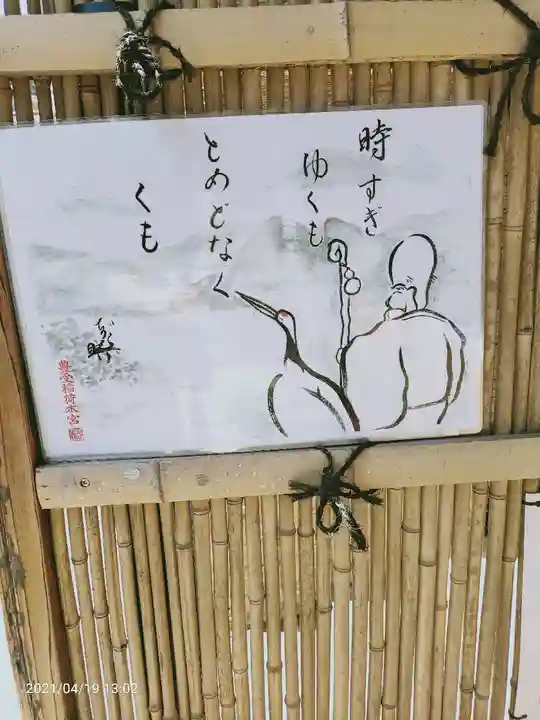 時すぎ
ゆくも
とめどなく
くも
豊受稲荷本宮
2021/04/19 13:02